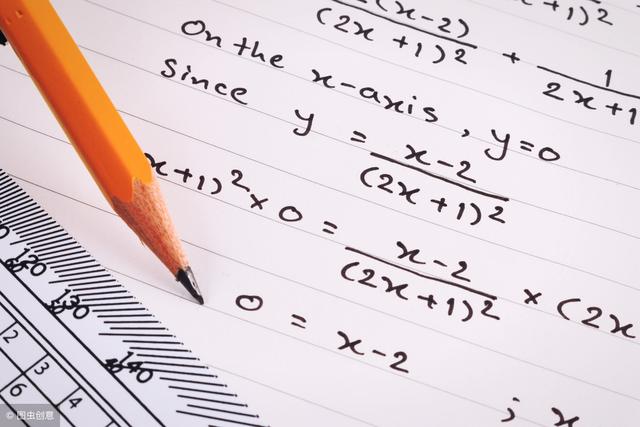 (x-2)
(2x+1)² + 1
+1)²
2x+1
On the x-axis, y=0
Since y = x-2
(2x+1)²
x+1)² × 0 = x-2
(2x+1)² × (2x
0 = x-2 ; x
120
130
140
2 3
6 4
©图虫创意